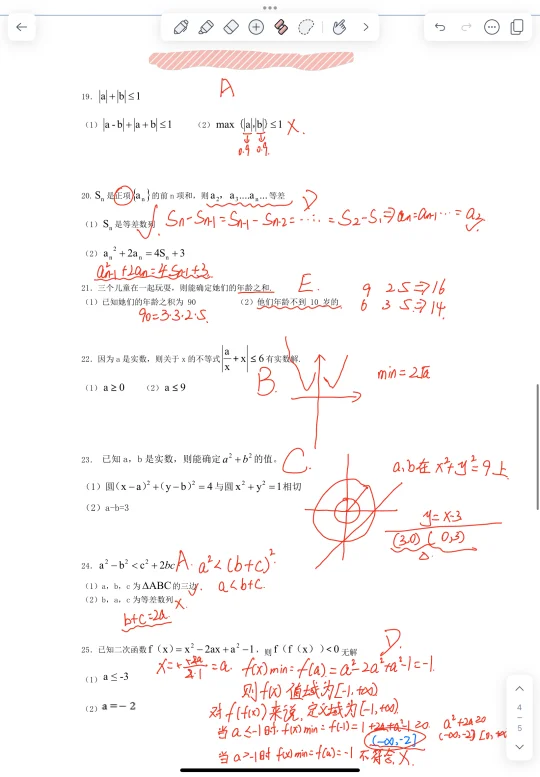 A
19. |a|+|b|≤1
(1) |a-b|+|a+b|≤1 (2) max{|a|,|b|}≤1 X.
0.9 0.9.
20. Sₙ是正项{aₙ}的前n项和，则a₂，a₃....aₙ...等差 D
(1) Sₙ是等差数列 √ Sn-Sn-1=Sn-1-Sn-2=……=S2-S1⇒an=an-1…=a2
(2) aₙ²+2aₙ=4Sₙ+3
21. 三个儿童在一起玩耍，则能确定她们的年龄之和. E. 9 2 5⇒16
(1) 已知她们的年龄之积为 90 (2) 他们年龄不到 10 岁的 6 3 5⇒14.
90=3·3·2·5.
22. 因为a是实数，则关于x的不等式|a/x+x|≤6有实数解. B. min=2√a
(1) a≥0 (2) a≤9
23. 已知 a，b 是实数，则能确定a²+b²的值。 C. a,b在x²+y²=9上
(1) 圆(x-a)²+(y-b)²=4与圆x²+y²=1相切
(2) a-b=3 y=x-3
(3,0) (0,3)
24. a²-b²<c²+2bc A. a²<(b+c)²
(1) a，b，c 为ΔABC的三边 √. a<b+c.
(2) b，a，c 为等差数列 X.
b+c=2a
25. 已知二次函数f(x)=x²-2ax+a²-1，则f(f(x))<0无解 D.
(1) a≤-3 =a. f(x)min=f(a)=a²-2a²+a²-1=-1.
则f(x)值域为[-1,+∞)
(2) a=-2 对f(f(x))来说，定义域为[-1,+∞)
当a≤-1时,f(x)min=f(-1)=1+2a+a²-1≥0. a²+2a≥0
(-∞,-2]
当a>-1时f(x)min=f(a)=-1 不符合X.
4
5